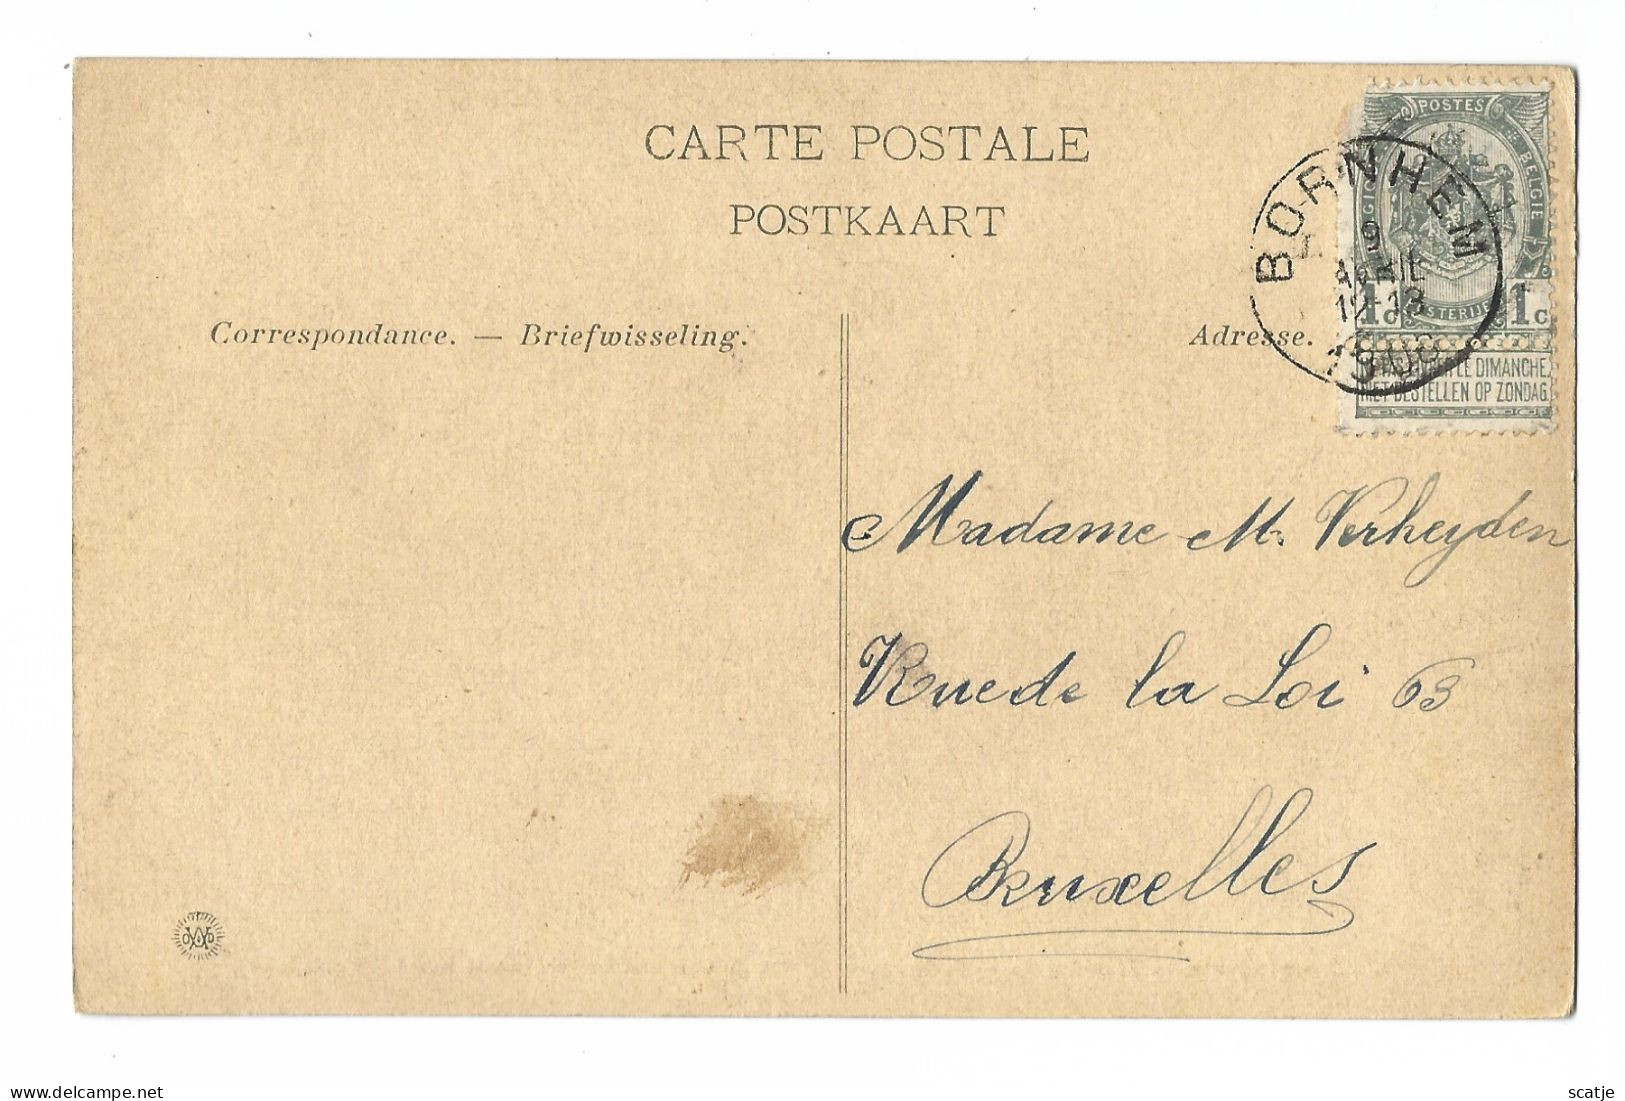 CARTE POSTALE
POSTKAART
Correspondance. — Briefwisseling.
Adresse.
POSTES
BELGIE
1c 1c
LE DIMANCHE
NIET BESTELLEN OP ZONDAG
BORNHEM
9
AVRIL
12-13
Madame M. Verheyden
Rue de la Loi 63
Bruxelles
scatje